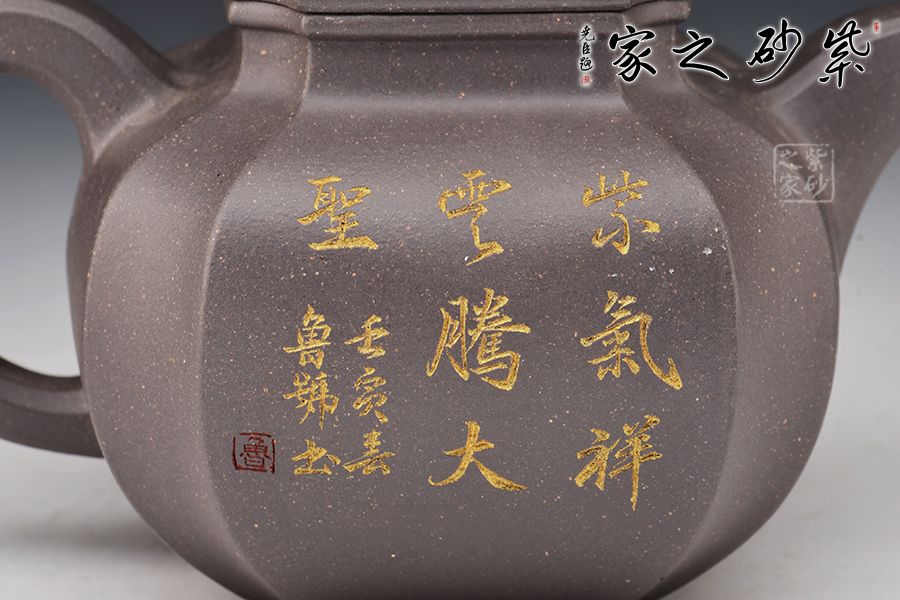 紫砂之家
堯臣題
紫砂之家
紫氣祥
雲騰大
聖
壬寅春
魯
書
魯